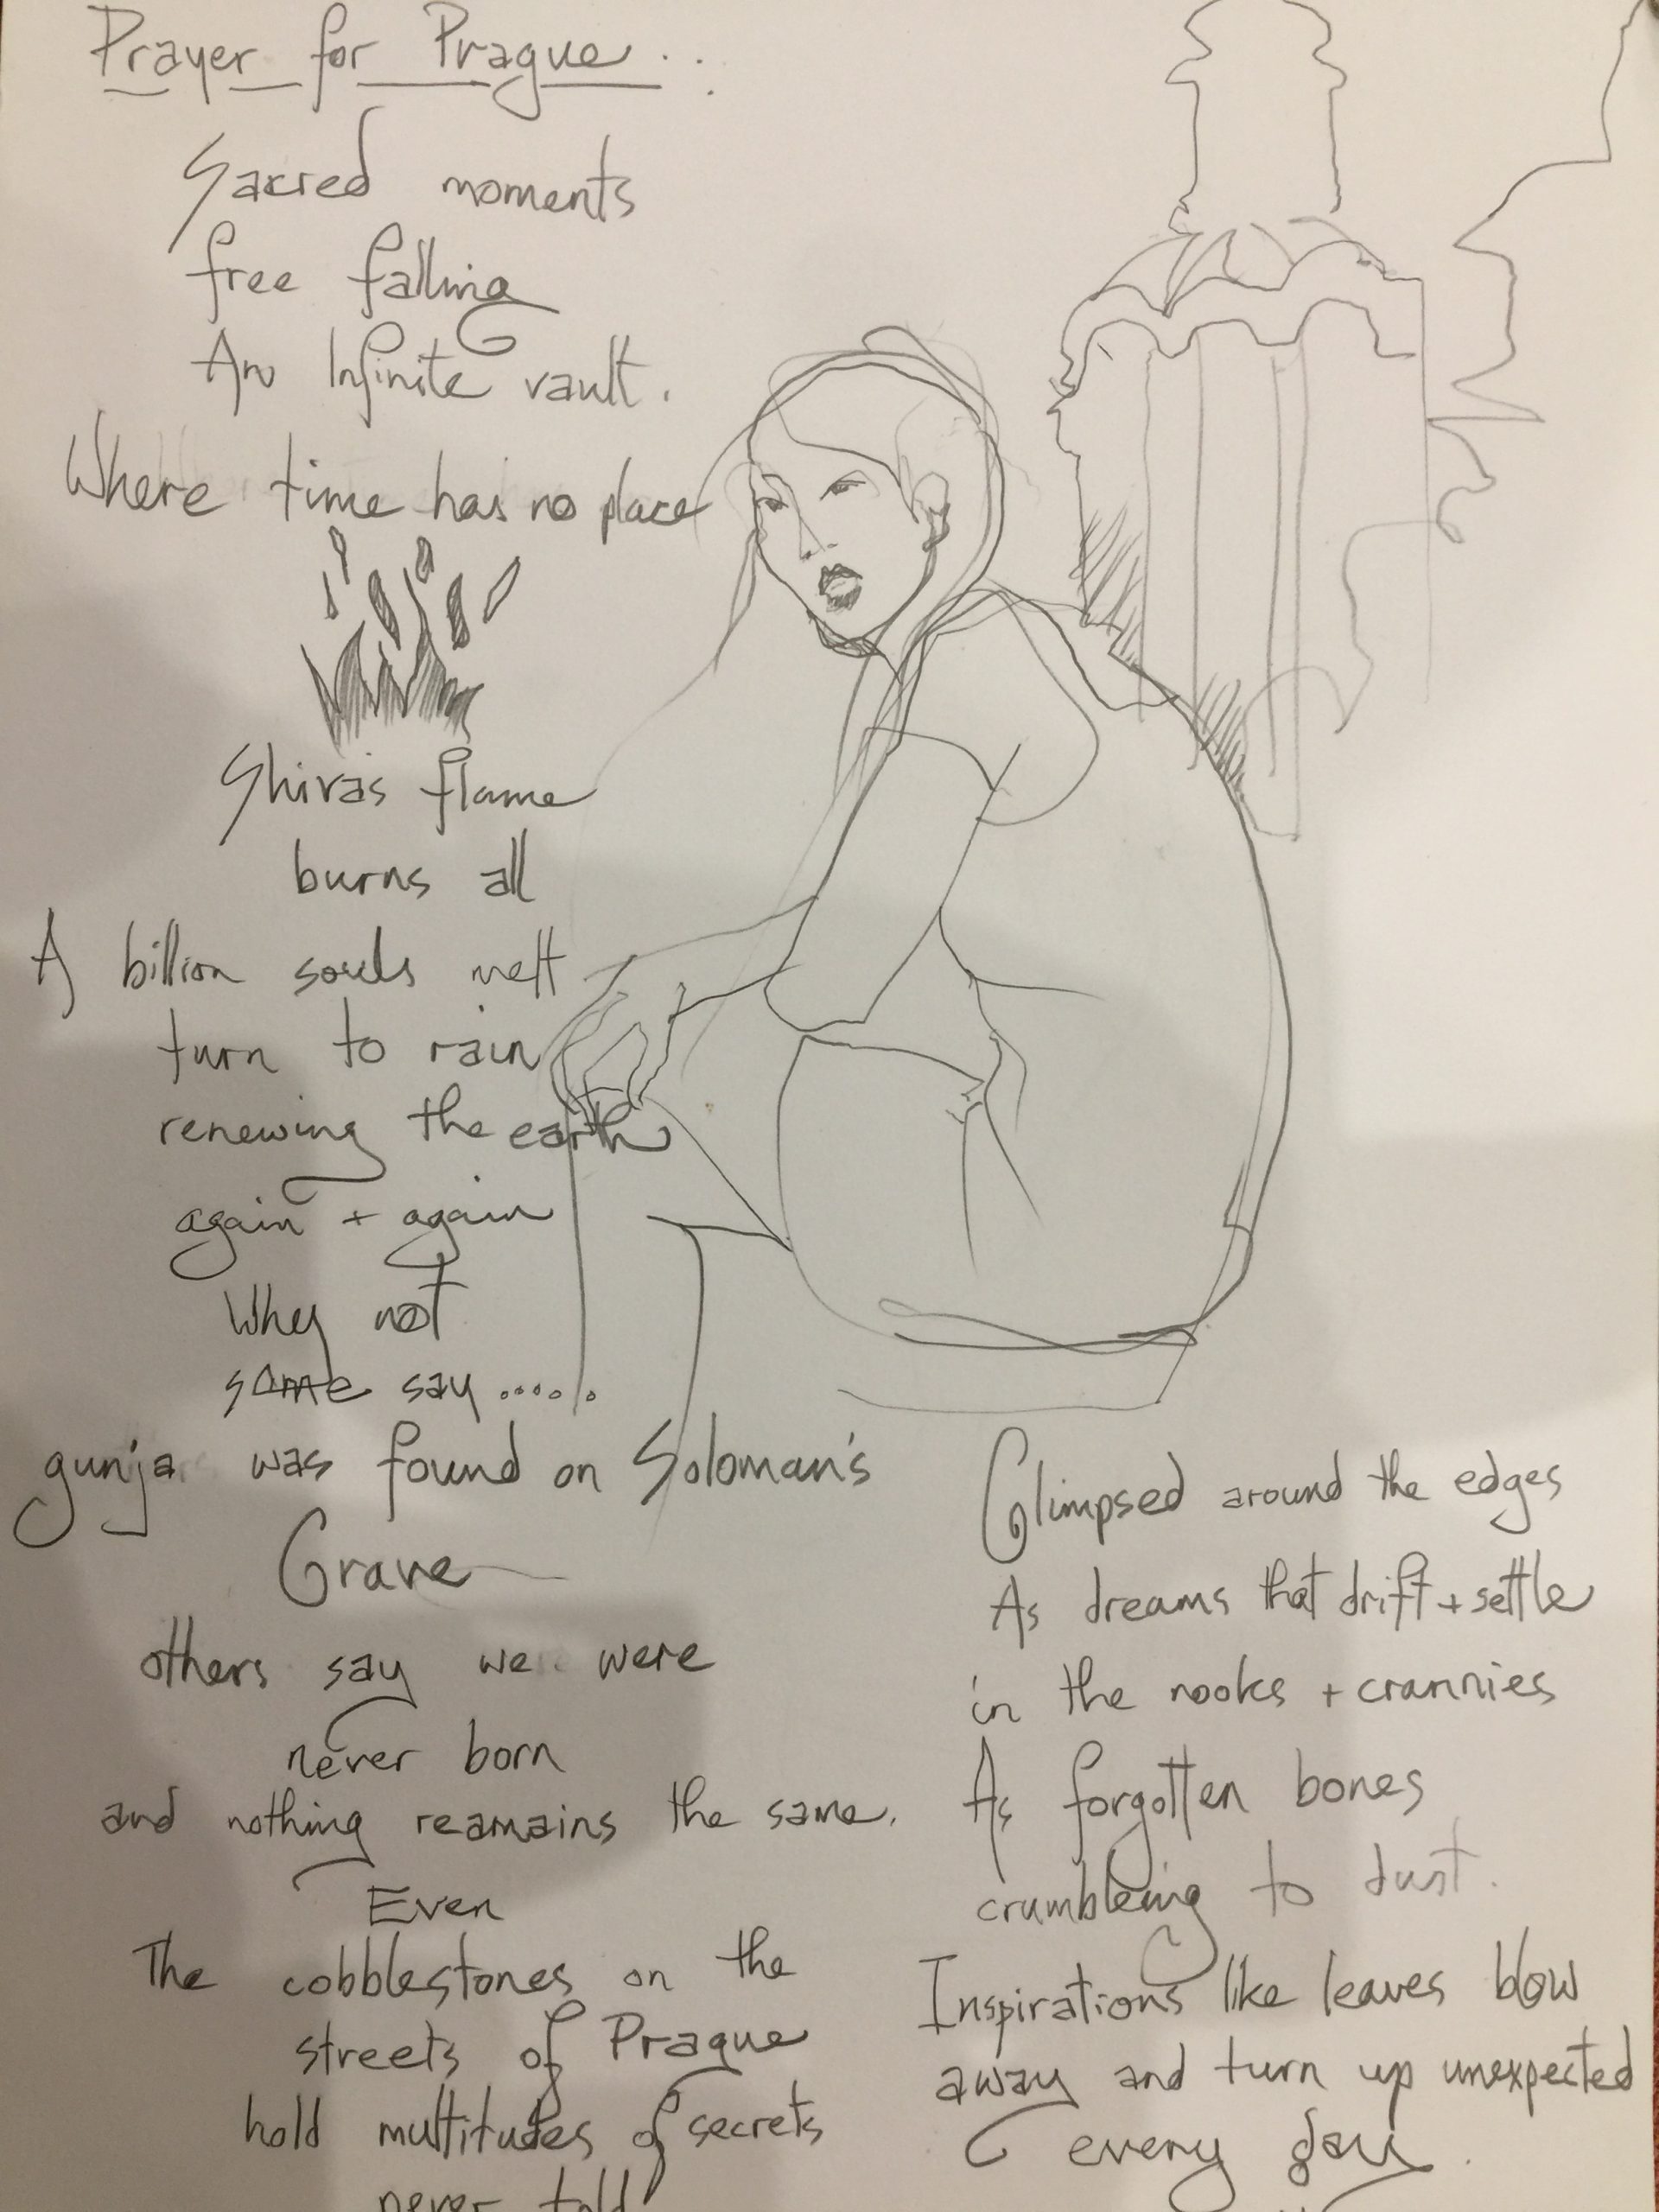 Prayer for Prague..
Sacred moments
free falling
An Infinite vault.
Where time has no place
Shiva's flame
burns all
A billion souls melt
turn to rain
renewing the earth
again + again
Why not
some say......
gunja was found on Soloman's
Grave
others say we were
never born
and nothing reamains the same.
Even
The cobblestones on the
streets of Prague
hold multitudes of secrets
never told
Glimpsed around the edges
As dreams that drift + settle
in the nooks + crannies
As forgotten bones
crumbleing to dust.
Inspirations like leaves blow
away and turn up unexpected
every day.